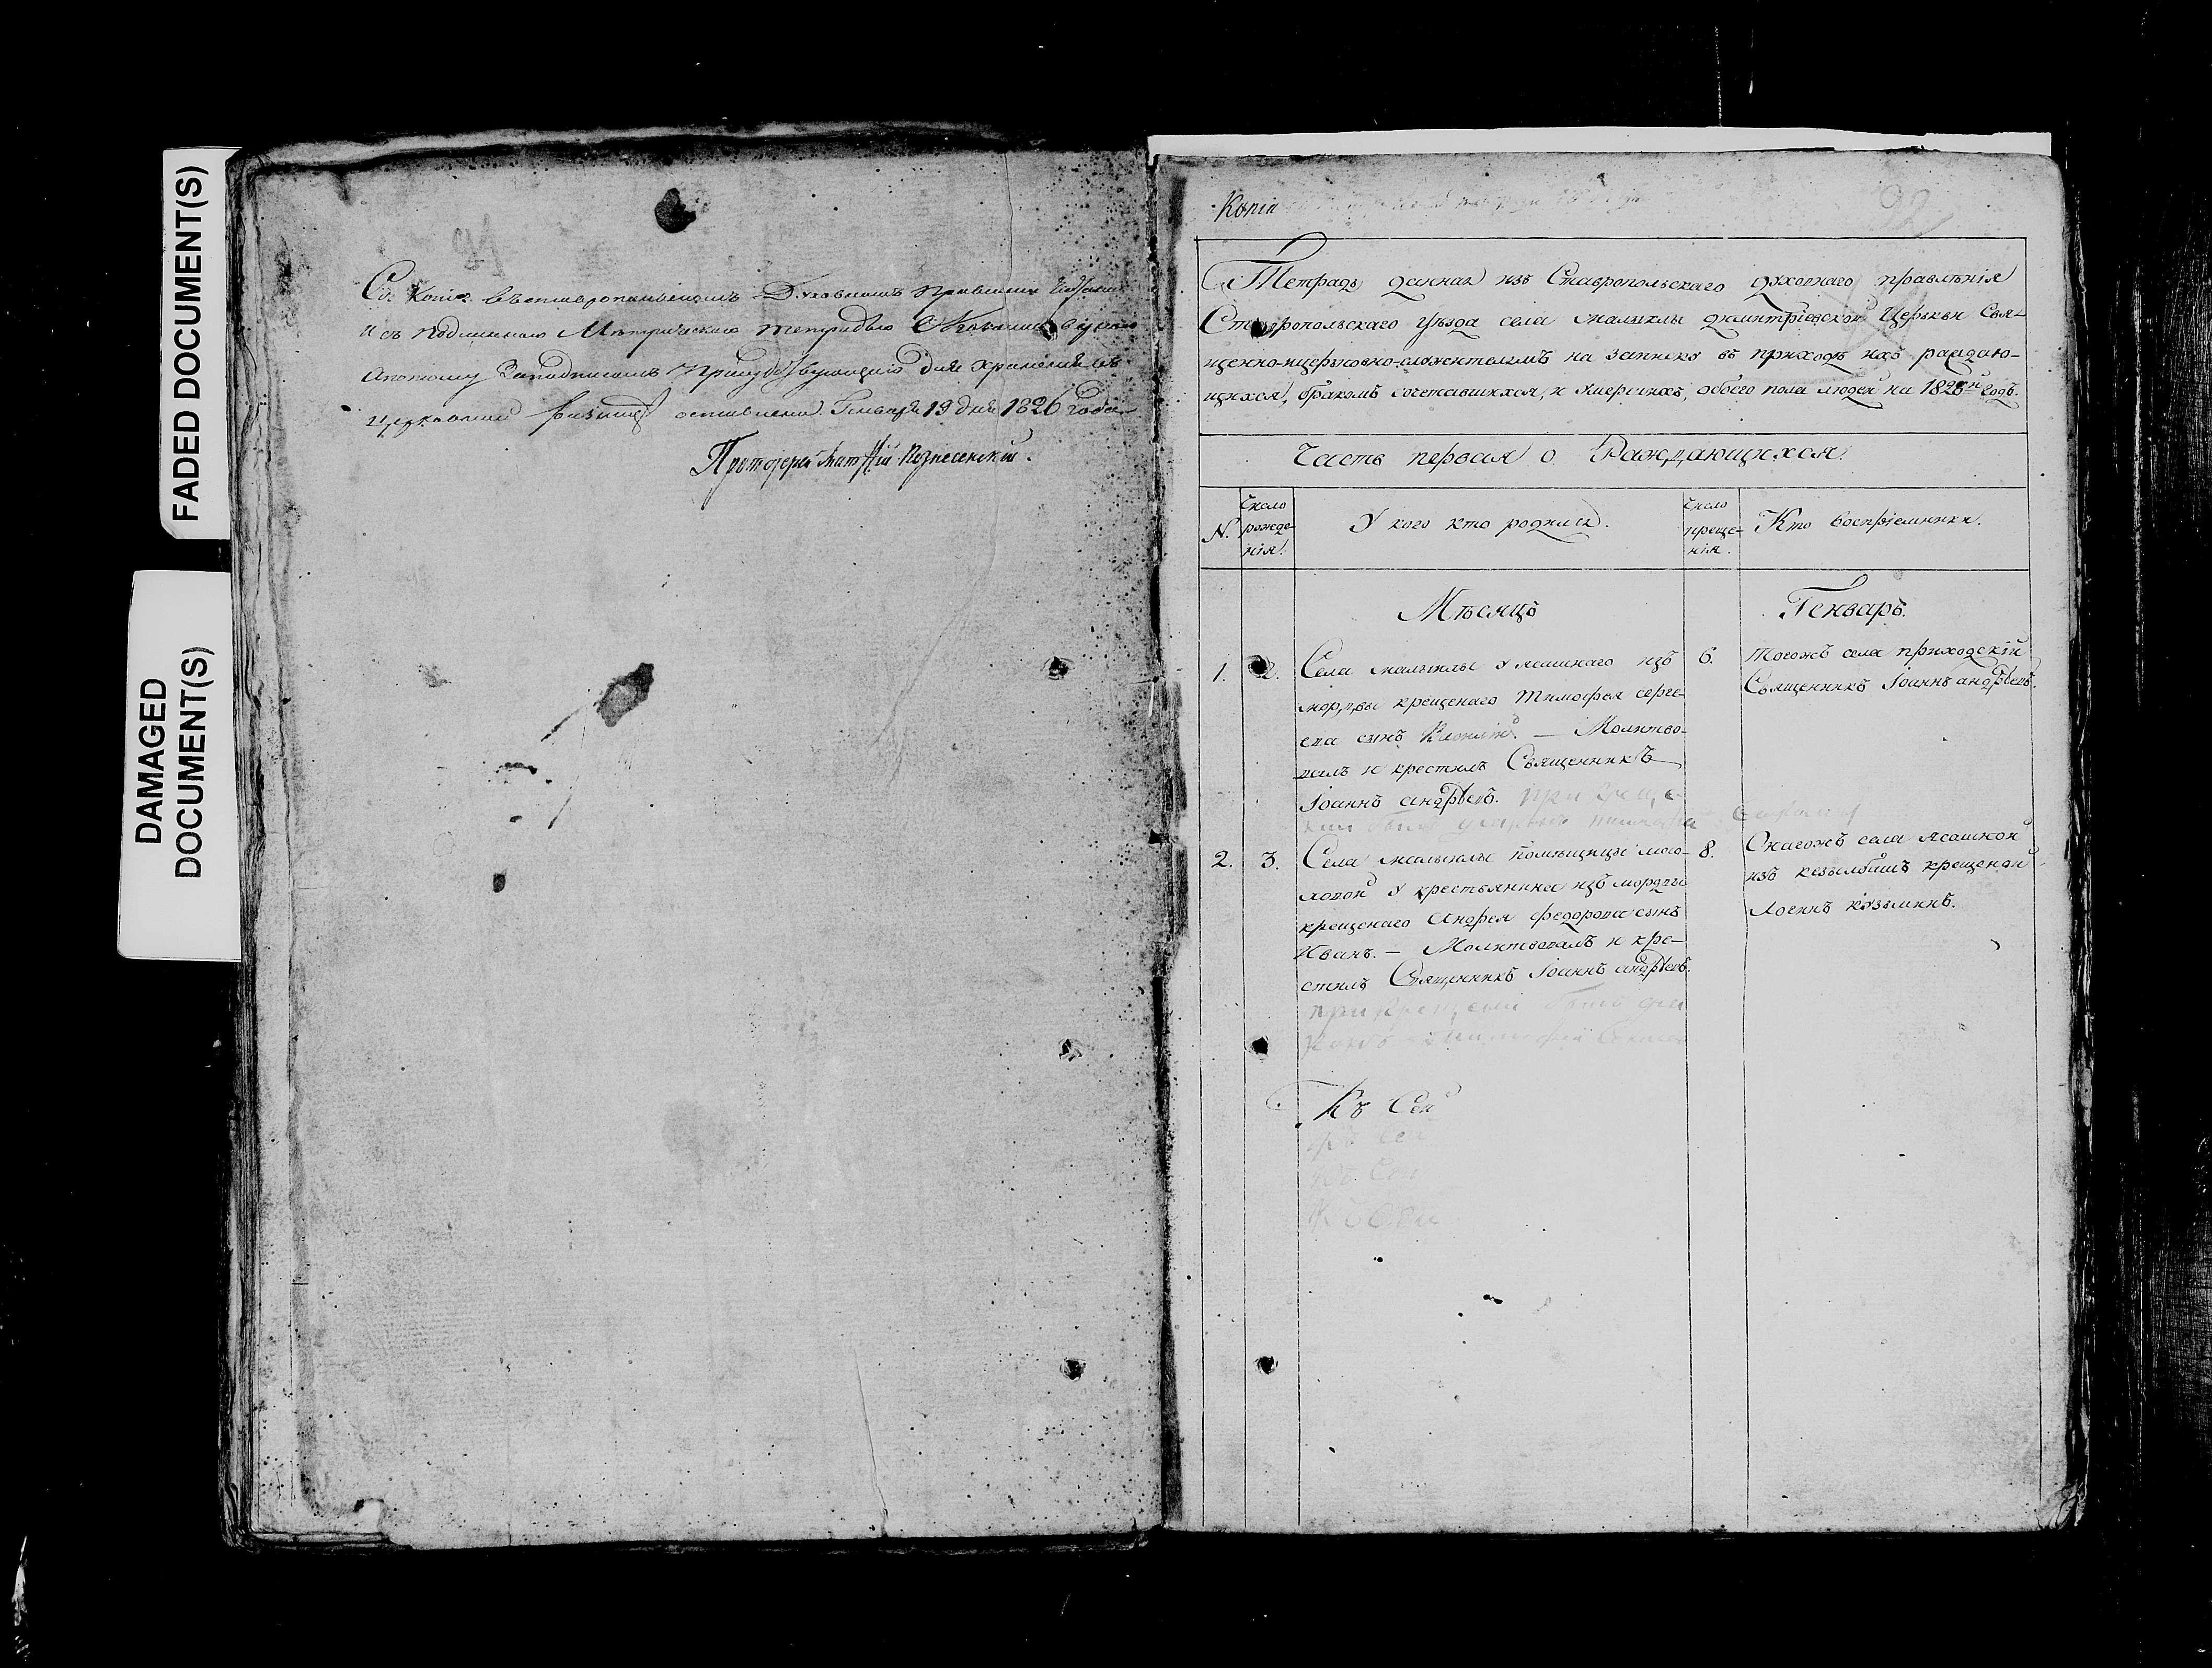 FADED DOCUMENT(S)
DAMAGED
DOCUMENT(S)
91
Сія Копія въ ставропольскомъ Духовномъ Правленіи
И съ подлинною Метрическою тетрадью
апотому За подписомъ Присудствующаго для храненія въ
церковной оставлена. Генваря 19 дня 1826 года
Протоіерей Матѳій Вознесенскій.
Копія
92
Тетрадь данная изъ Ставропольскаго духовнаго правленія
Ставропольскаго уѣзда села малыклы димитріевской Церькви Свя-
щенно-ицерковно-служителямъ на записку въ приходѣ ихъ раждаю-
щихся, бракомъ сочетавшихся, и умершихъ, обоего пола людей на 1825й годъ.
Часть первая о Раждающихся.
N.
Число
рожде-
нія.
У кого кто родился.
Число
креще-
нія.
Кто воспріемники.
Мѣсяцъ
Генварь.
1.
2.
Села малыклы у ясашнаго изъ
мордвы крещенаго Тимофея серге-
ева сынъ — Молитво-
валъ и крестилъ Священникъ
Іоаннъ андрѣевъ. при креще
6.
Тогожъ села приходскій
Священникъ Іоаннъ андрѣевъ.
2.
3.
Села малыклы помѣщицы
у крестьянина изъ мордвы
крещенаго Андрея федорова сынъ
Иванъ. — Молитвовалъ и кре-
стилъ Священникъ Іоаннъ андрѣевъ.
при крещеніи былъ дья
8.
Онагожъ села ясашной
изъ кезылбашъ крещеной
козьминъ.
Къ Сей
Къ Сей
Къ Сей